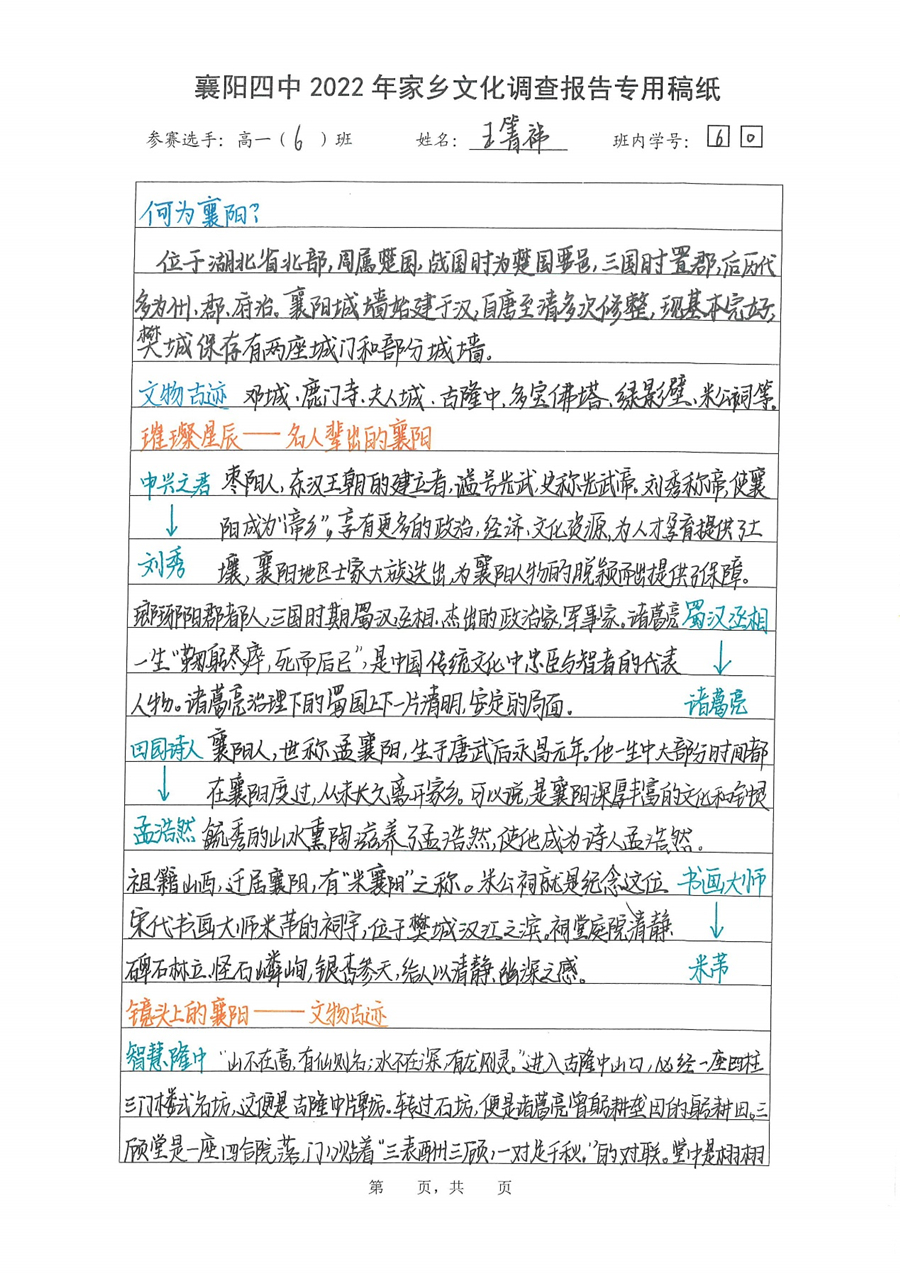 襄阳四中 2022 年家乡文化调查报告专用稿纸
参赛选手：高一（ 6 ）班 姓名：王箐祎 班内学号：6 0
何为襄阳？
位于湖北省北部，周属楚国，战国时为楚国要邑，三国时置郡，后历代
多为州、郡、府治。襄阳城墙始建于汉，自唐至清多次修整，现基本完好，
樊城保存有两座城门和部分城墙。
文物古迹 邓城、鹿门寺、夫人城、古隆中、多宝佛塔、绿影壁、米公祠等。
璀璨星辰——名人辈出的襄阳
中兴之君 枣阳人，东汉王朝的建立者，谥号光武，史称光武帝。刘秀称帝，使襄
阳成为“帝乡”，享有更多的政治、经济、文化资源，为人才孕育提供了土
刘秀 壤，襄阳地区士家大族迭出，为襄阳人物的脱颖而出提供了保障。
琅琊阳都人，三国时期蜀汉丞相，杰出的政治家，军事家。诸葛亮 蜀汉丞相
一生“鞠躬尽瘁，死而后已”，是中国传统文化中忠臣与智者的代表
人物。诸葛亮治理下的蜀国上下一片清明，安定的局面。 诸葛亮
田园诗人 襄阳人，世称孟襄阳，生于唐武后永昌元年。他一生中大部分时间都
在襄阳度过，从未长久离开家乡。可以说，是襄阳深厚丰富的文化和钟灵
孟浩然 毓秀的山水熏陶滋养了孟浩然，使他成为诗人孟浩然。
祖籍山西，迁居襄阳，有“米襄阳”之称。米公祠就是纪念这位 书画大师
宋代书画大师米芾的祠宇，位于樊城汉江之滨。祠堂庭院清静、
碑石林立、怪石嶙峋，银杏参天，给人以清静、幽深之感。 米芾
镜头上的襄阳——文物古迹
智慧隆中 “山不在高，有仙则名；水不在深，有龙则灵。”进入古隆中山口，必经一座四柱
三门楼式名坊，这便是古隆中牌坊。转过石坊，便是诸葛亮曾躬耕垄田的躬耕田。三
顾堂是一座四合院落，门口贴着“三表酬三顾，一对足千秋。”的对联。堂中是栩栩
第 页，共 页